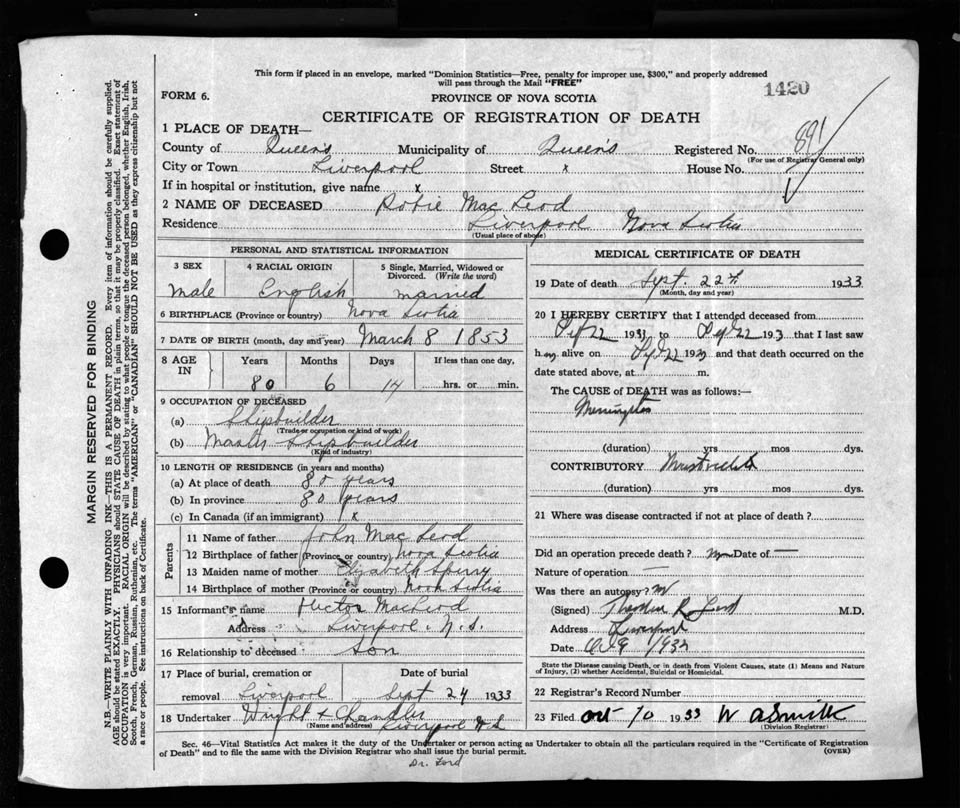 This form if placed in an envelope, marked "Dominion Statistics—Free, penalty for improper use, $300," and properly addressed
will pass through the Mail "FREE"
1420
FORM 6.
PROVINCE OF NOVA SCOTIA
CERTIFICATE OF REGISTRATION OF DEATH
1 PLACE OF DEATH—
County of Queen's Municipality of Queen's Registered No. 891
(For use of Registrar General only)
City or Town Liverpool Street x House No.
If in hospital or institution, give name x
2 NAME OF DECEASED Robie Mac Leod
Residence Liverpool Nova Scotia
(Usual place of abode)
PERSONAL AND STATISTICAL INFORMATION
3 SEX 4 RACIAL ORIGIN 5 Single, Married, Widowed or Divorced. (Write the word)
Male English married
6 BIRTHPLACE (Province or country) Nova Scotia
7 DATE OF BIRTH (month, day and year) March 8 1853
8 AGE IN Years Months Days If less than one day,
80 6 14 hrs. or min.
9 OCCUPATION OF DECEASED
(a) Shipbuilder
(Trade or occupation or kind of work)
(b) Master Shipbuilder
(Kind of industry)
10 LENGTH OF RESIDENCE (in years and months)
(a) At place of death 80 years
(b) In province 80 years
(c) In Canada (if an immigrant) x
Parents
11 Name of father John Mac Leod
12 Birthplace of father (Province or country) Nova Scotia
13 Maiden name of mother Elizabeth Sperry
14 Birthplace of mother (Province or country) Nova Scotia
15 Informant's name Hector MacLeod
Address Liverpool, N.S.
16 Relationship to deceased son
17 Place of burial, cremation or removal Liverpool Date of burial Sept 24 1933
18 Undertaker Wright & Chandler
(Name and address) Liverpool N.S.
MEDICAL CERTIFICATE OF DEATH
19 Date of death Sept. 22nd 1933
(Month, day and year)
20 I HEREBY CERTIFY that I attended deceased from
Sept 22 1933 to Sept 22 193 that I last saw
h alive on Sept 22 1933 and that death occurred on the
date stated above, at m.
The CAUSE of DEATH was as follows:—
(duration) yrs mos dys.
CONTRIBUTORY
(duration) yrs. mos. dys.
21 Where was disease contracted if not at place of death?
Did an operation precede death? Date of —
Nature of operation —
Was there an autopsy?
(Signed) M.D.
Address Liverpool
Date
State the Disease causing Death, or in death from Violent Causes, state (1) Means and Nature
of Injury, (2) whether Accidental, Suicidal or Homicidal.
22 Registrar's Record Number
23 Filed Oct 10 1933 W A Smith
(Division Registrar)
Sec. 46—Vital Statistics Act makes it the duty of the Undertaker or person acting as Undertaker to obtain all the particulars required in the "Certificate of Registration
of Death" and to file the same with the Division Registrar who shall issue the burial permit. (OVER)
Dr. Ford
MARGIN RESERVED FOR BINDING
N.B.—WRITE PLAINLY WITH UNFADING INK—THIS IS A PERMANENT RECORD. Every item of information should be carefully supplied.
AGE should be stated EXACTLY. PHYSICIANS should STATE CAUSE OF DEATH in plain terms, so that it may be properly classified. Exact statement of
OCCUPATION is very important. RACIAL ORIGIN will be described by stating to what people or tongue the deceased person belonged, whether English, Irish,
Scotch, French, German, Russian, Ruthenian, etc. The terms "AMERICAN" or "CANADIAN" SHOULD NOT BE USED as they express citizenship but not
a race or people. See instructions on back of Certificate.